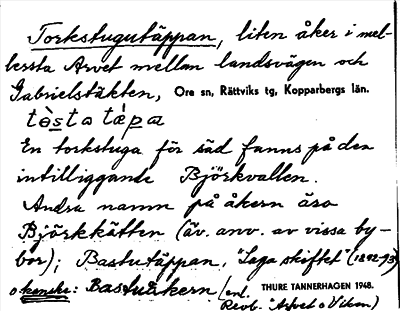 Torkstugutäppan, liten åker i mel-
lersta Arvet mellan landsvägen och
Gabrielstäkten, Ore sn, Rättviks tg, Kopparbergs län.
tὲsta tάpa
En torkstuga för säd fanns på den
intilliggande Björkvallen.
Andra namn på åkern äro
Björkkätten (äv. anv. av vissa by-
bor); Bastutäppan, "Laga skiftet" (1892-93)
o kanske: Bastuåkern (enl. THURE TANNERHAGEN 1948.
Revb. "Arvet o Viken)